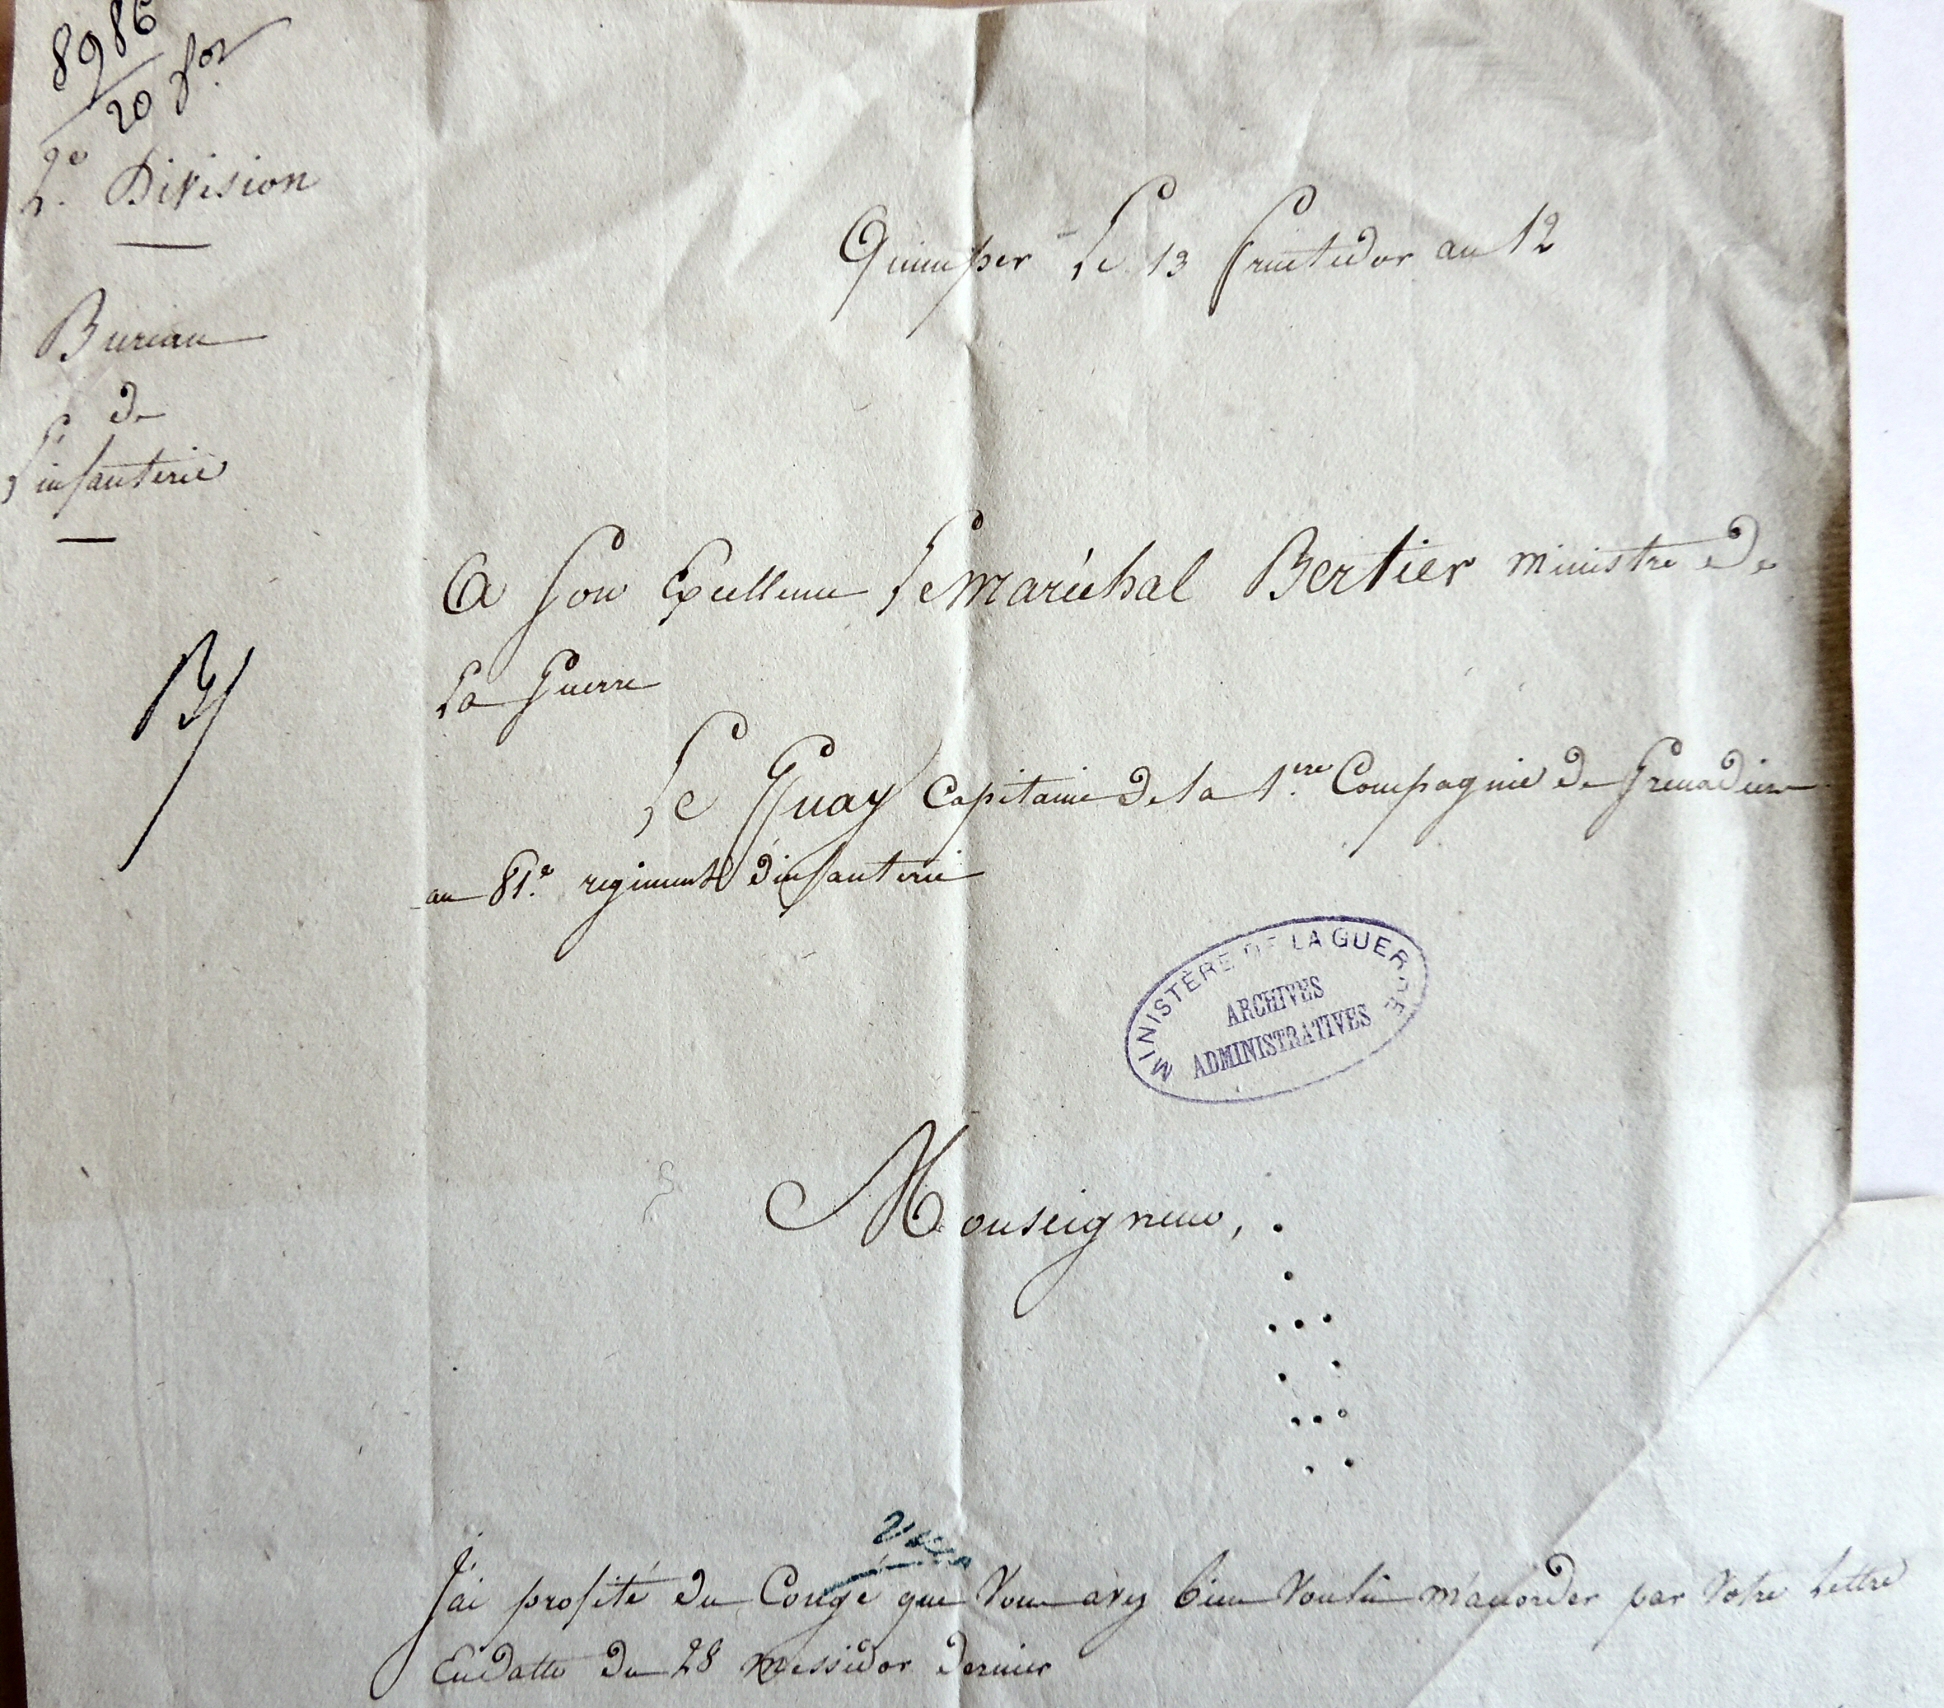 8986
20 for
2.e Division
Bureau
de
L'infanterie
Quimper Le 13 fructidor an 12
A Son Excellence Le Maréchal Bertier ministre de
La Guerre
Le Guay Capitaine de la 1.ere Compagnie de Grenadiers
au 81.e regiment d'infanterie
MINISTÈRE DE LA GUERRE
ARCHIVES
ADMINISTRATIVES
Monseigneur,
J'ai profité du Congé que Vous avez bien Voulu m'accorder par Votre Lettre
En datte du 28 messidor dernier